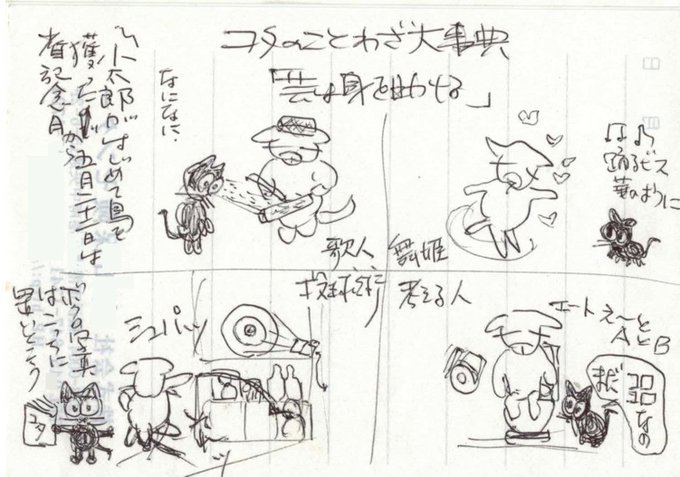 コタのことわざ大事典
「芸は身を助ける」
♪♪
踊るビス
舞姫
なになに、
歌人
「小太郎がはじめて鳥を
獲ったから五月二十二日は
記念日
考える人
エートえ〜と
AとB
まだ
品なの
ミュパッ
ボクの写真
はここに
置いとこう
コタ